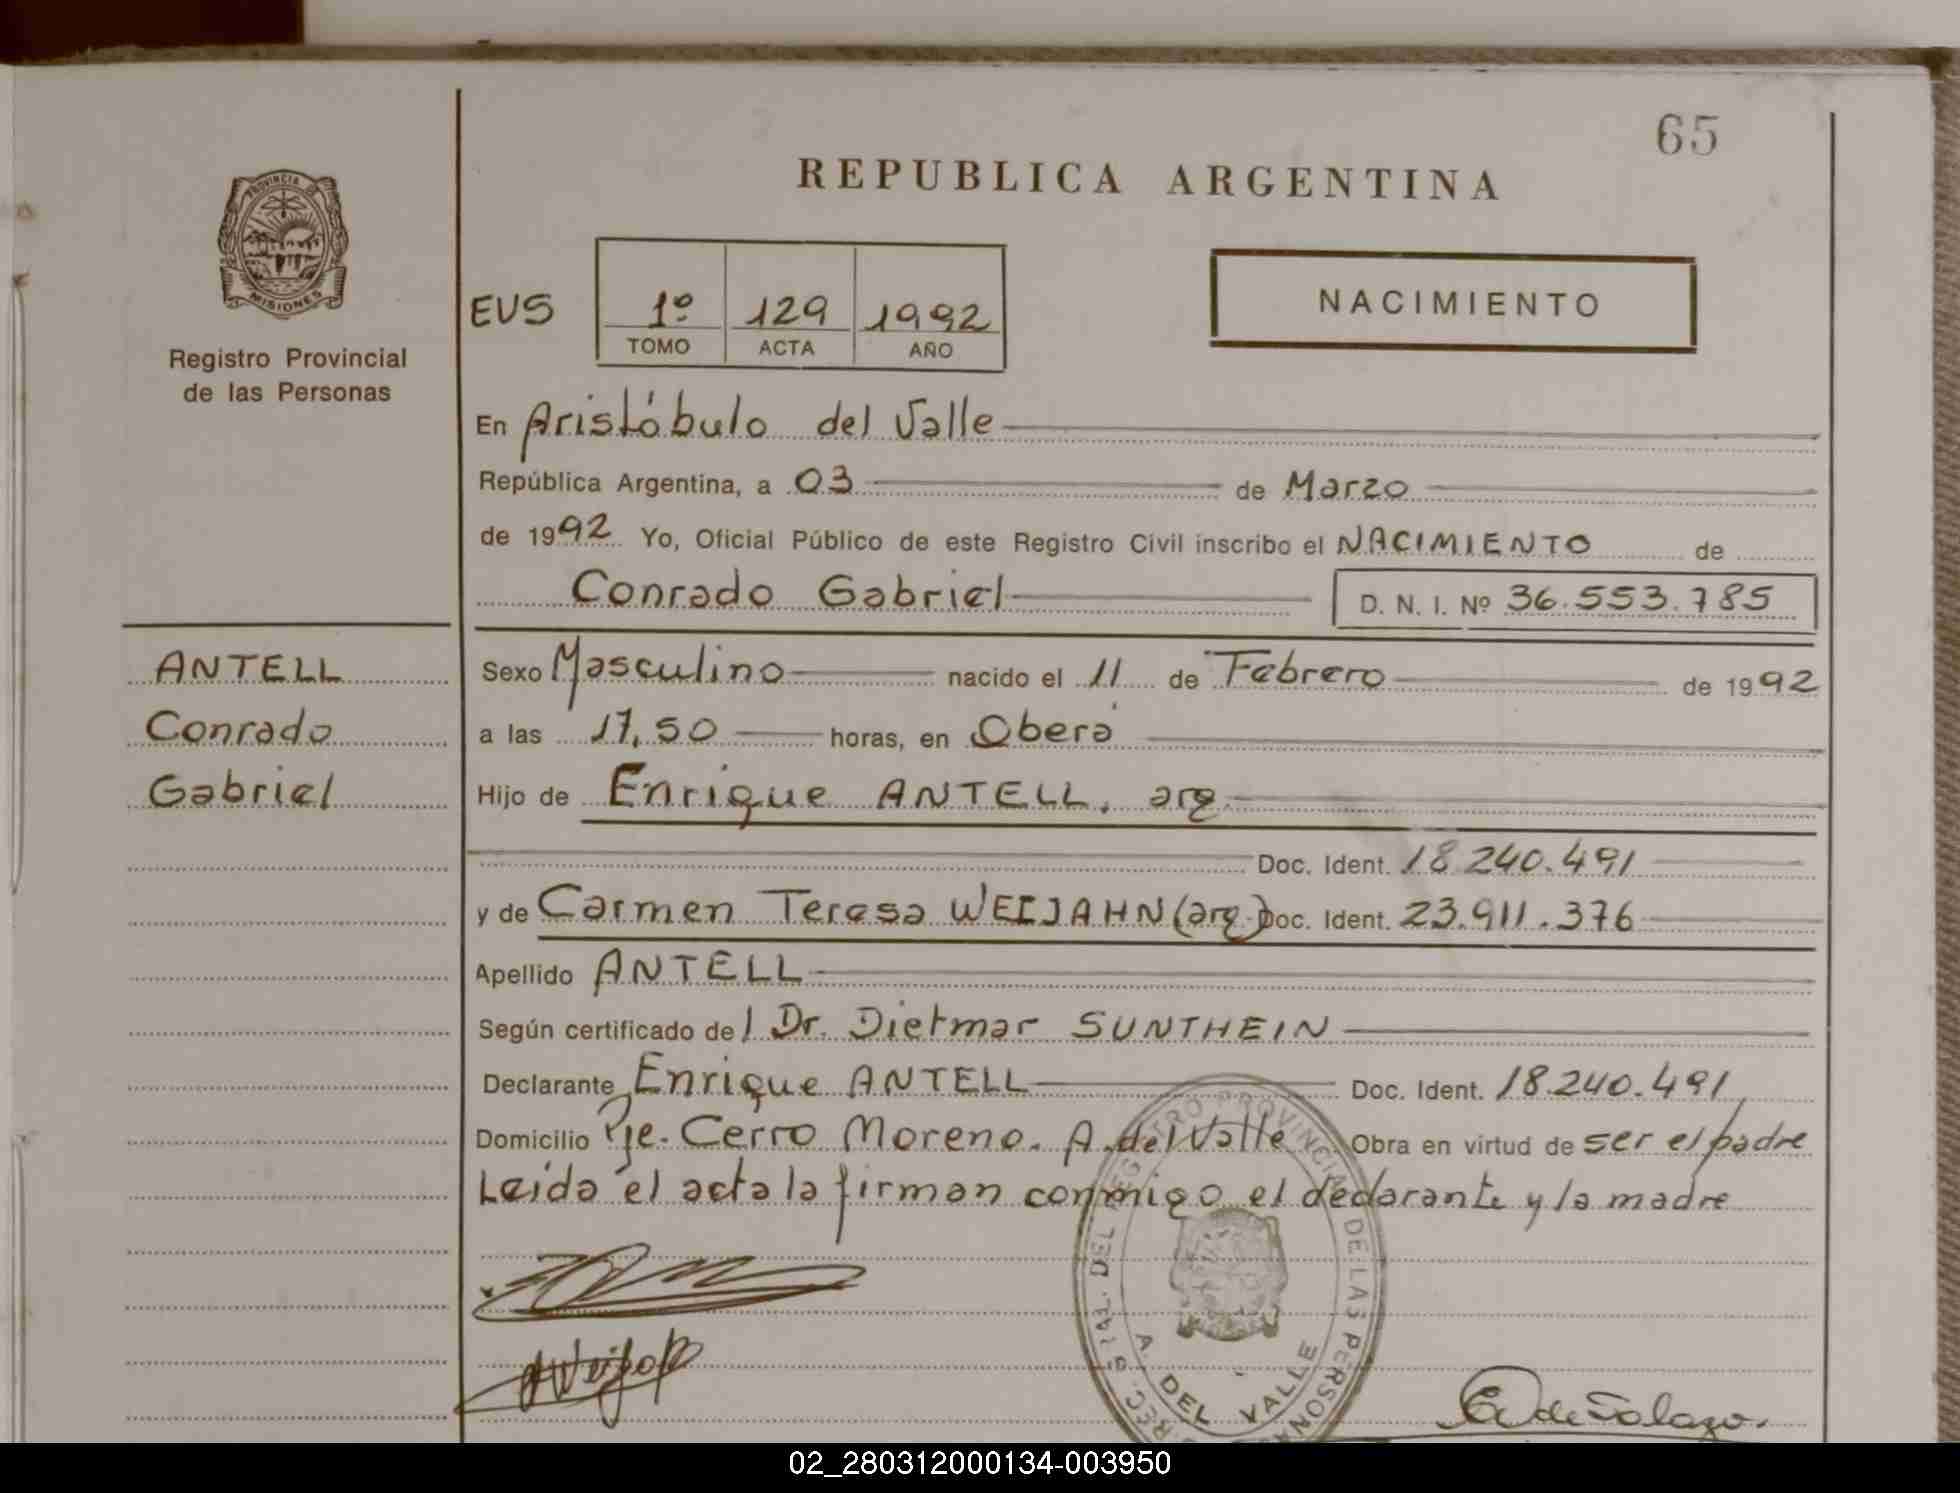 65
REPUBLICA ARGENTINA
PROVINCIA DE
MISIONES
Registro Provincial
de las Personas
EVS
1º 129 1992
TOMO ACTA AÑO
NACIMIENTO
En Aristóbulo del Valle
República Argentina, a 03 de Marzo
de 1992 Yo, Oficial Público de este Registro Civil inscribo el NACIMIENTO de
Conrado Gabriel D. N. I. Nº 36.553.785
ANTELL
Conrado
Gabriel
Sexo Masculino nacido el 11 de Febrero de 1992
a las 17,50 horas, en Oberá
Hijo de Enrique ANTELL, arg.
Doc. Ident. 18.240.491
y de Carmen Teresa WEIJAHN (arg.) Doc. Ident. 23.911.376
Apellido ANTELL
Según certificado del Dr. Dietmar SUNTHEIN
Declarante Enrique ANTELL Doc. Ident. 18.240.491
Domicilio Pje. Cerro Moreno. A. del Valle Obra en virtud de ser el padre
Leída el acta la firman conmigo el declarante y la madre
REGISTRO PROVINCIAL DE LAS PERSONAS
A. DEL VALLE
02_280312000134-003950